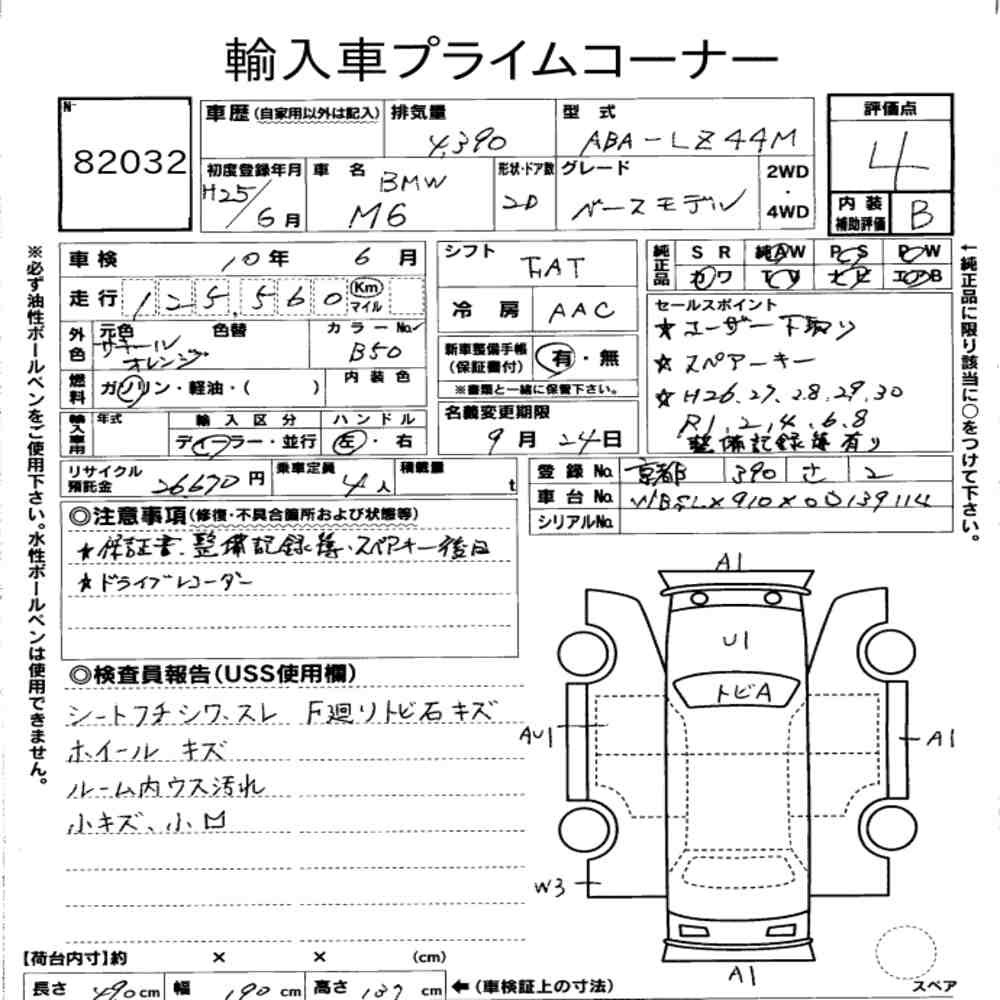 輸入車プライムコーナー
N-
82032
車歴(自家用以外は記入)
排気量
4,390
型 式
ABA-LZ44M
評価点
4
初度登録年月
H25/6月
車 名
BMW
M6
形状・ドア数
2D
グレード
ベースモデル
2WD
・
4WD
内 装
補助評価
B
車検 10年 6月
走行 125,560 Km
マイル
シフト FAT
冷 房 AAC
純正品
S R 純AW P S P W
カ ワ T V ナ ビ エアB
外色
元色 色替
サキール
オレンジ
カラーNo.
B50
新車整備手帳
(保証書付)
有・無
※書類と一緒に保管下さい。
セールスポイント
★ユーザー下取り
★スペアーキー
★H26.27.28.29.30
R1.2.4.6.8
整備記録簿有り
燃料
ガソリン・軽油・( )
内 装 色
輸入車用
年式
輸 入 区 分
ディーラー・並行
ハ ン ド ル
左・右
名義変更期限
9月 24日
リサイクル
預託金
26,670円
乗車定員
4人
積載量
t
登 録 No. 京都 390 さ 2
車 台 No. WBSLX910X0D139114
シリアルNo.
◎注意事項(修復・不具合箇所および状態等)
★保証書.整備記録簿.スペアキー後日
★ドライブレコーダー
◎検査員報告(USS使用欄)
シートフチシワ、スレ F廻りトビ石キズ
ホイール キズ
ルーム内ウス汚れ
小キズ、小凹
A1
U1
トビA
AU1
A1
W3
A1
スペア
【荷台内寸】約 × × (cm)
長さ 490cm 幅 190cm 高さ 137cm ←(車検証上の寸法)
※必ず油性ボールペンをご使用下さい。水性ボールペンは使用できません。
←純正品に限り該当に○をつけて下さい。